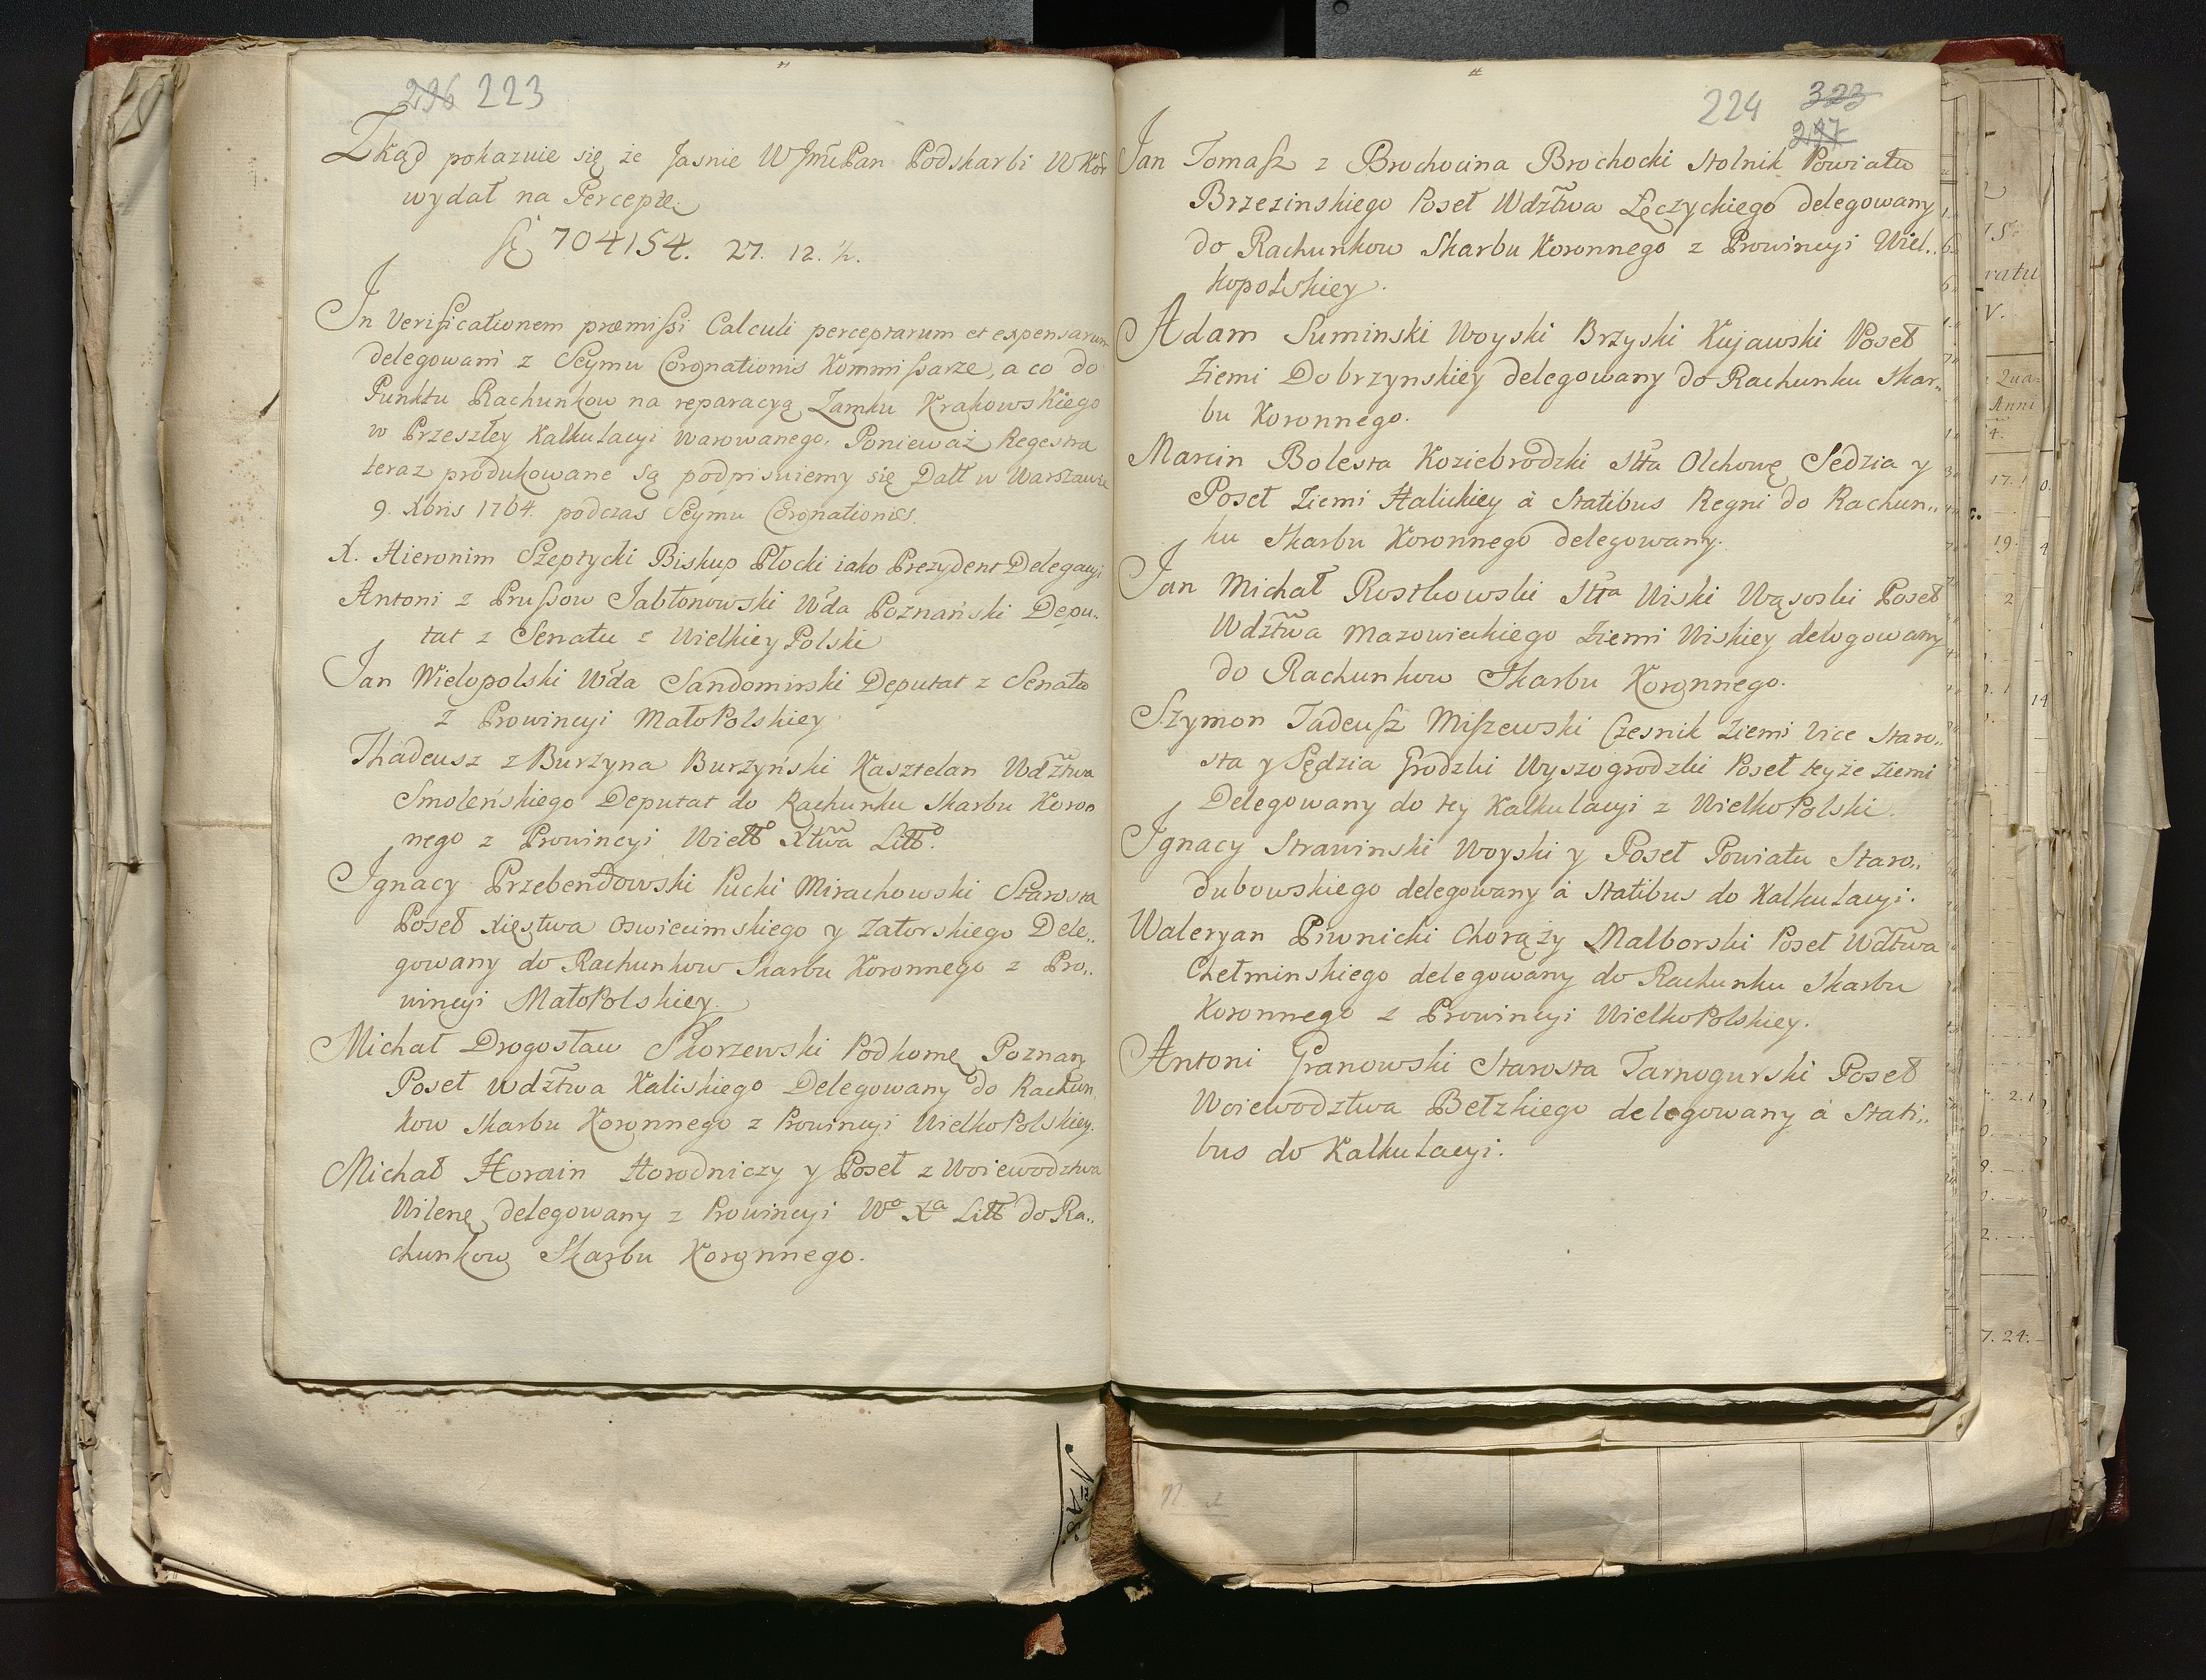 296 223
Zkąd pokazuie się że Jasnie W JmćPan Podskarbi W Kor
wydał na Perceptę
704154. 27. 12. ½.
In Verificationem præmissi Calculi perceptarum et expensarum
delegowani z Seymu Coronationis Kommissarze, a co do
Punktu Rachunkow na reparacyą Zamku Krakowskiego
w Przeszłey Kalkulacyi warowanego, Ponieważ Regestra
teraz produkowane są podpisuiemy się Datt w Warszawie
9. Xbris 1764. podczas Seymu Coronationis.
X. Hieronim Szeptycki Biskup Płocki iako Prezydent Delegacyi
Antoni z Prussow Jabłonowski Wda Poznański Depu„
tat z Senatu z Wielkiey Polski
Jan Wielopolski Wda Sandomirski Deputat z Senatu
z Prowincyi MałoPolskiey
Thadeusz z Burzyna Burzyński Kasztelan Wdztwa
Smoleńskiego Deputat do Rachunku Skarbu Koron
nego z Prowincyi Wielkº Xtwa Littº.
Ignacy Przebendowski Pucki Mirachowski Starosta
Poseł Xięstwa Oswiecimskiego y Zatorskiego Dele„
gowany do Rachunkow Skarbu Koronnego z Pro„
wincyi MałoPolskiey.
Michał Drogosław Skorzewski Podkomę Poznanę
Poseł Wdztwa Kaliskiego Delegowany do Rachun„
kow Skarbu Koronnego z Prowincyi WielkoPolskiey.
Michał Horain Horodniczy y Poseł z Woiewodztwa
Wilenę delegowany z Prowincyi Wº Xª Litt do Ra„
chunkow Skarbu Koronnego.
224 323
297
Jan Tomasz z Brochocina Brochocki Stolnik Powiatu
Brzezinskiego Poseł Wdztwa Łęczyckiego delegowany
do Rachunkow Skarbu Koronnego z Prowincyi Wiel„
kopolskiey.
Adam Suminski Woyski Brzyski Kujawski Poseł
Ziemi Dobrzynskiey delegowany do Rachunku Skar„
bu Koronnego.
Marcin Bolesta Koziebrodzki Stta Olchowę Sędzia y
Poseł Ziemi Halickiey à Statibus Regni do Rachun„
ku Skarbu Koronnego delegowany.
Jan Michał Rostkowski Stta Wiski Wąsoski Poseł
Wdztwa Mazowieckiego Ziemi Wiskiey delegowany
do Rachunkow Skarbu Koronnego.
Szymon Tadeusz Miszewski Czesnik Ziemi Vice Staro„
sta y Sędzia Grodzki Wyszogrodzki Poseł teyże Ziemi
Delegowany do tey Kalkulacyi z WielkoPolski.
Ignacy Strawinski Woyski y Poseł Powiatu Staro„
dubowskiego delegowany à Statibus do Kalkulacyi.
Waleryan Piwnicki Chorąży Malborski Poseł Wdtwa
Chełminskiego delegowany do Rachunku Skarbu
Koronnego z Prowincyi WielkoPolskiey.
Antoni Granowski Starosta Tarnogurski Poseł
Woiewodztwa Bełzkiego delegowany à Stati„
bus do Kalkulacyi.